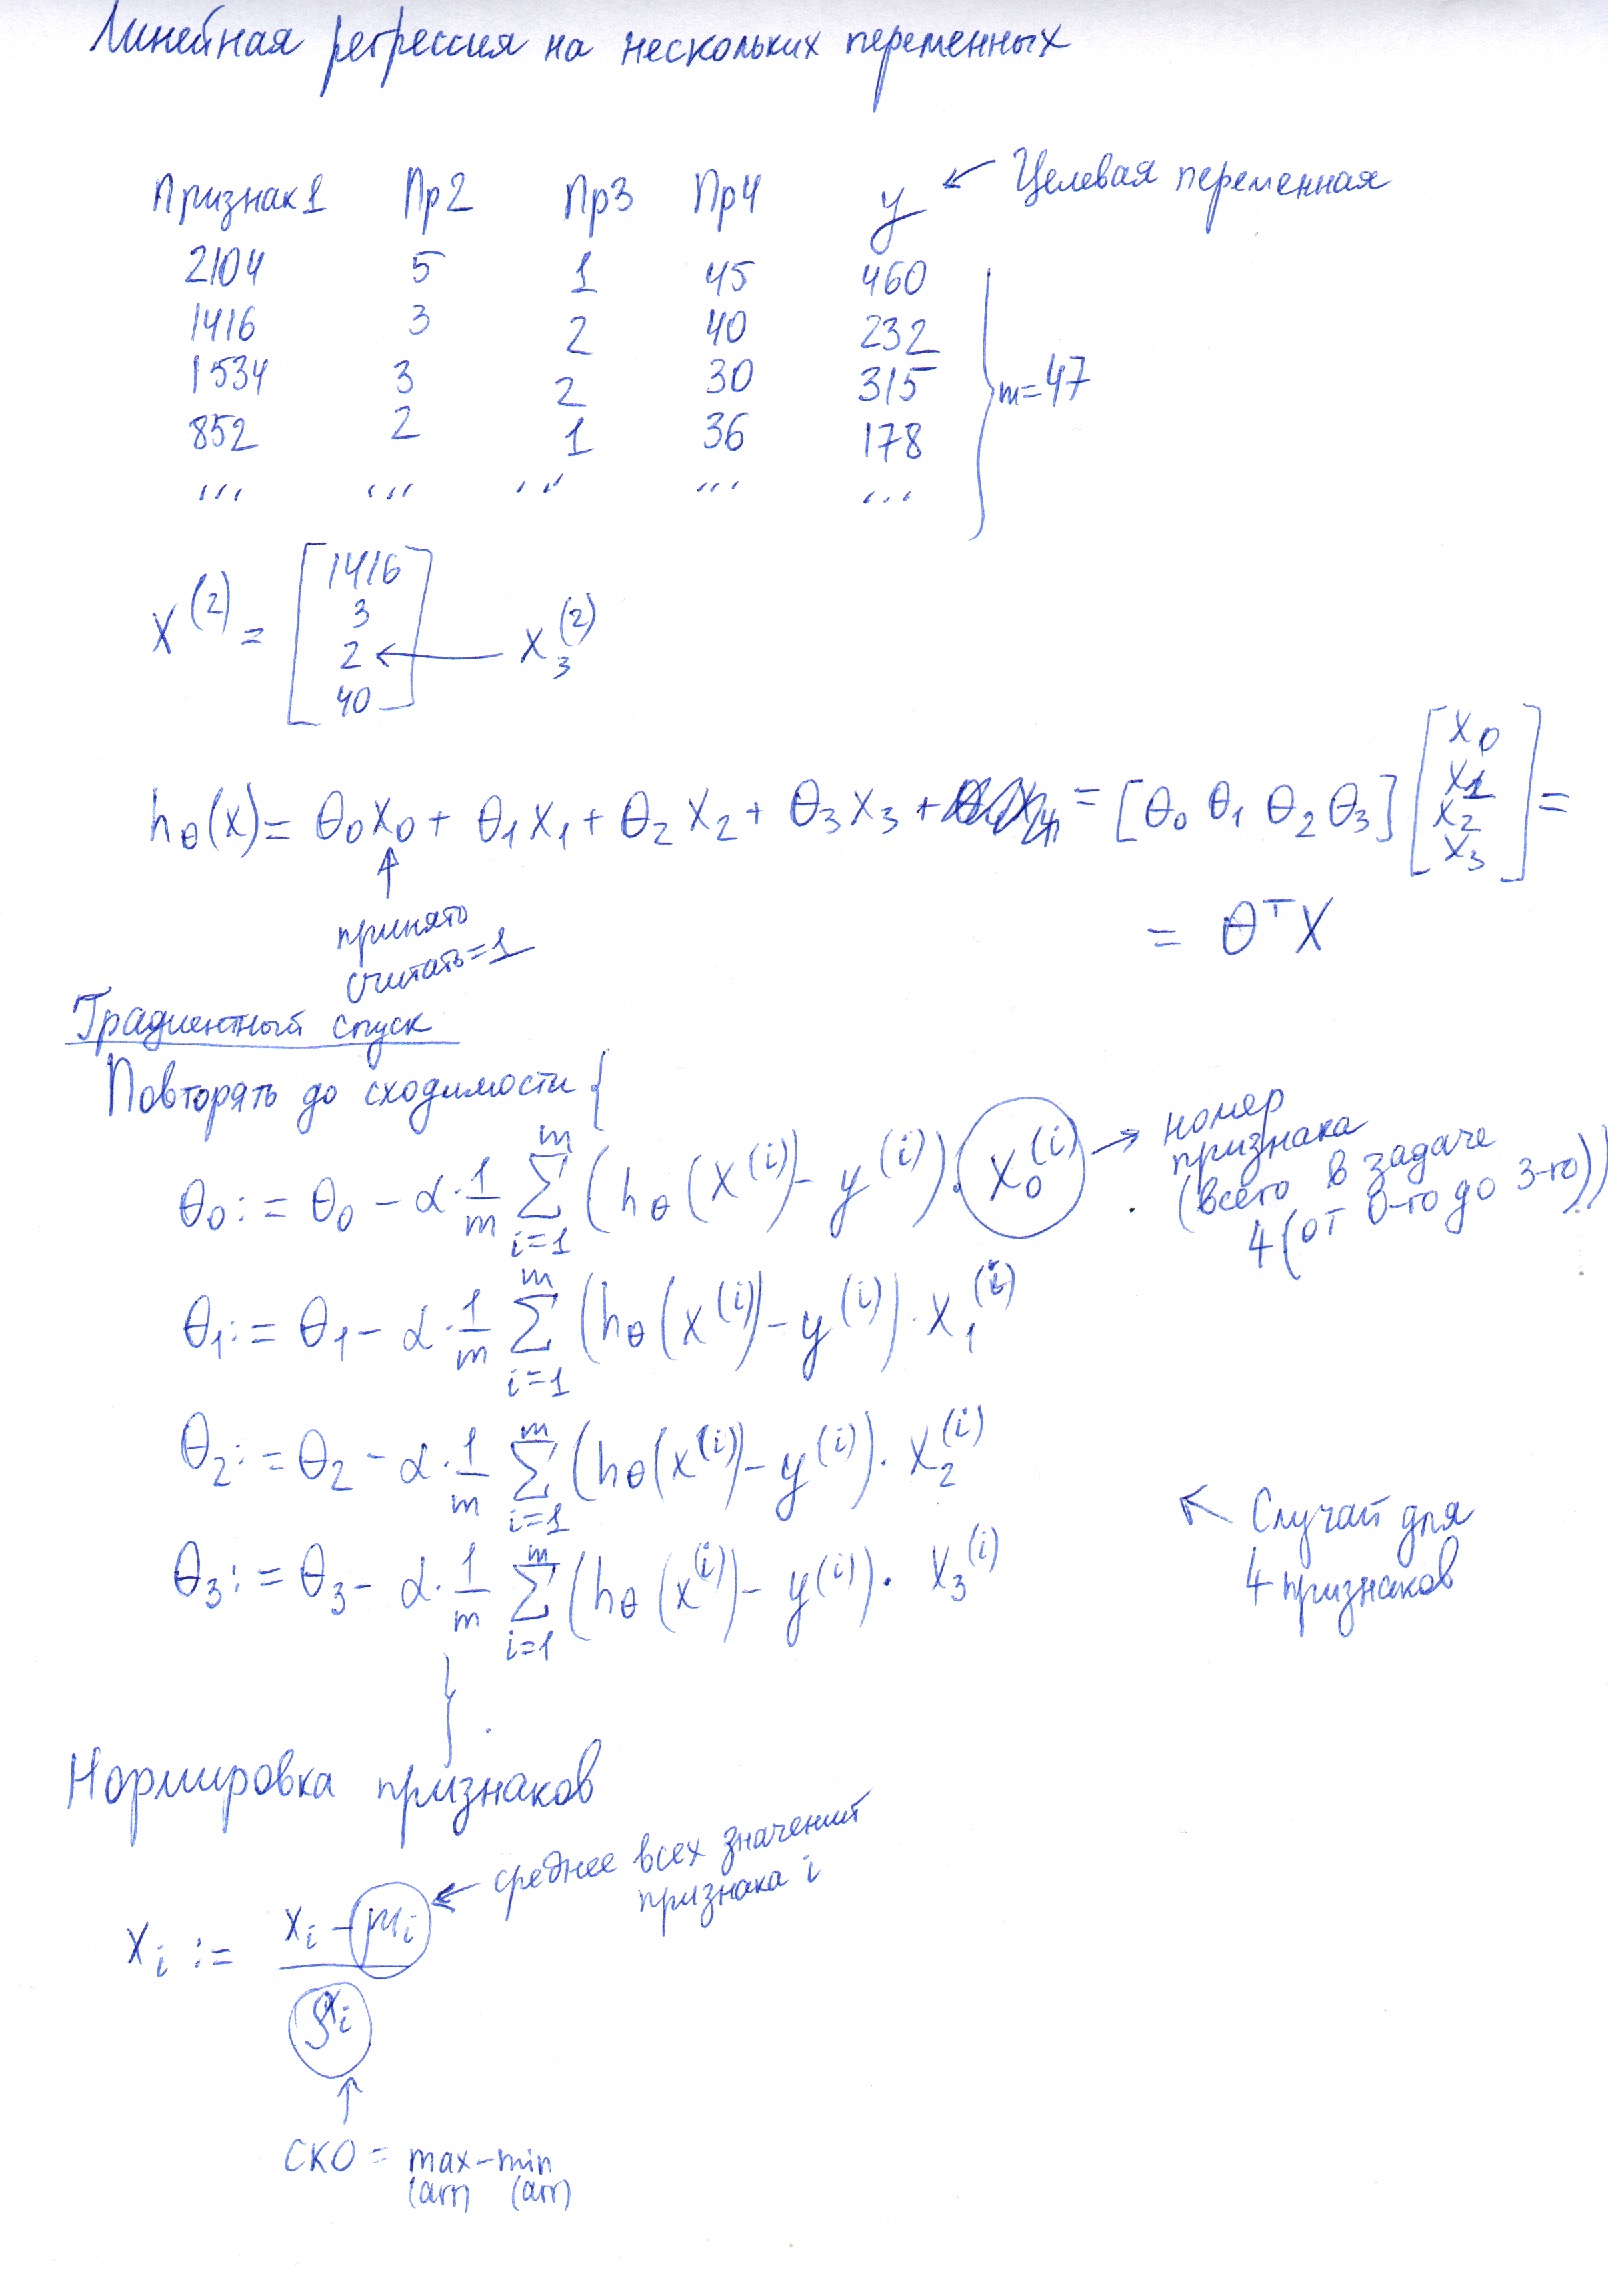 Линейная регрессия на нескольких переменных
Признак1 Пр2 Пр3 Пр4 y ← Целевая переменная
2104 5 1 45 460
1416 3 2 40 232
1534 3 2 30 315
852 2 1 36 178
... ... ... ... ...
} m=47
X^(2) = [1416 3 2 40] ← X_3^(2)
h_θ(x) = θ_0 x_0 + θ_1 x_1 + θ_2 x_2 + θ_3 x_3 + = [θ_0 θ_1 θ_2 θ_3] [x_0 x_1 x_2 x_3] =
= θ^T X
↑
принято
считать=1
Градиентный спуск
Повторять до сходимости {
θ_0 := θ_0 − α · 1/m Σ_{i=1}^{m} (h_θ(x^(i)) − y^(i)) · x_0^(i) →
номер
признака
(всего в задаче
4 (от 0-го до 3-го))
θ_1 := θ_1 − α · 1/m Σ_{i=1}^{m} (h_θ(x^(i)) − y^(i)) · x_1^(i)
θ_2 := θ_2 − α · 1/m Σ_{i=1}^{m} (h_θ(x^(i)) − y^(i)) · x_2^(i)
θ_3 := θ_3 − α · 1/m Σ_{i=1}^{m} (h_θ(x^(i)) − y^(i)) · x_3^(i)
← Случай для
4 признаков
}
Нормировка признаков
← среднее всех значений
признака i
x_i := (x_i − μ_i) / S_i
↑
СКО = max − min
(arr) (arr)